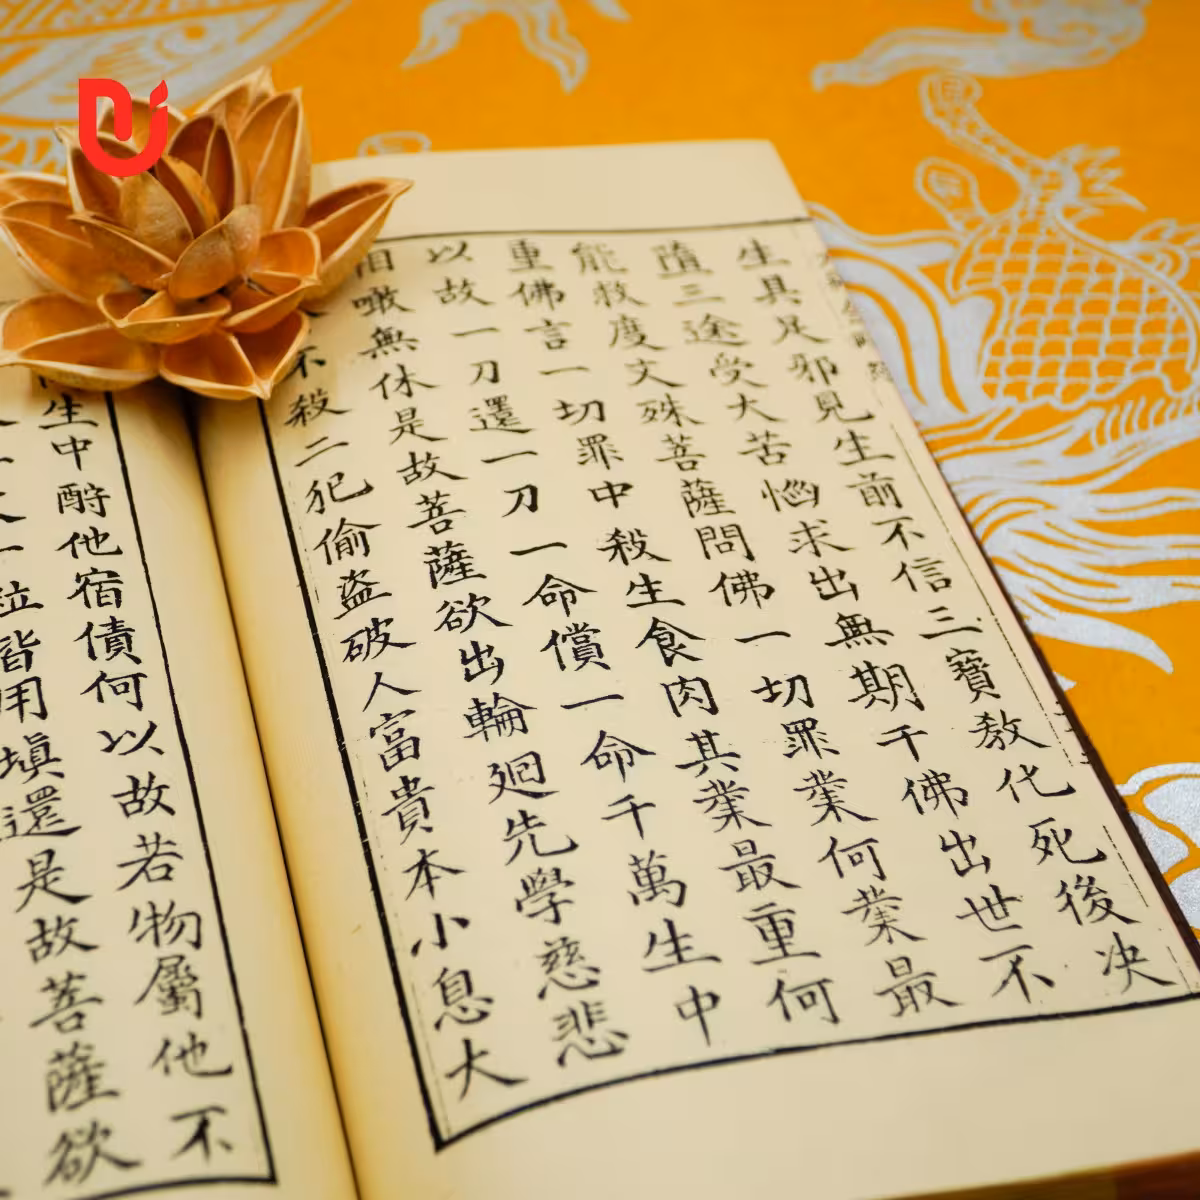 生具足邪見生前不信三寶教化死後决
墮三途受大苦惱求出無期千佛出世不
能救度文殊菩薩問佛一切罪業何業最
重佛言一切罪中殺生食肉其業最重何
以故一刀還一刀一命償一命千萬生中
相噉無休是故菩薩欲出輪廻先學慈悲
不殺二犯偷盗破人富貴本小息大
生中酧他宿債何以故若物屬他不
一粒皆用填還是故菩薩欲